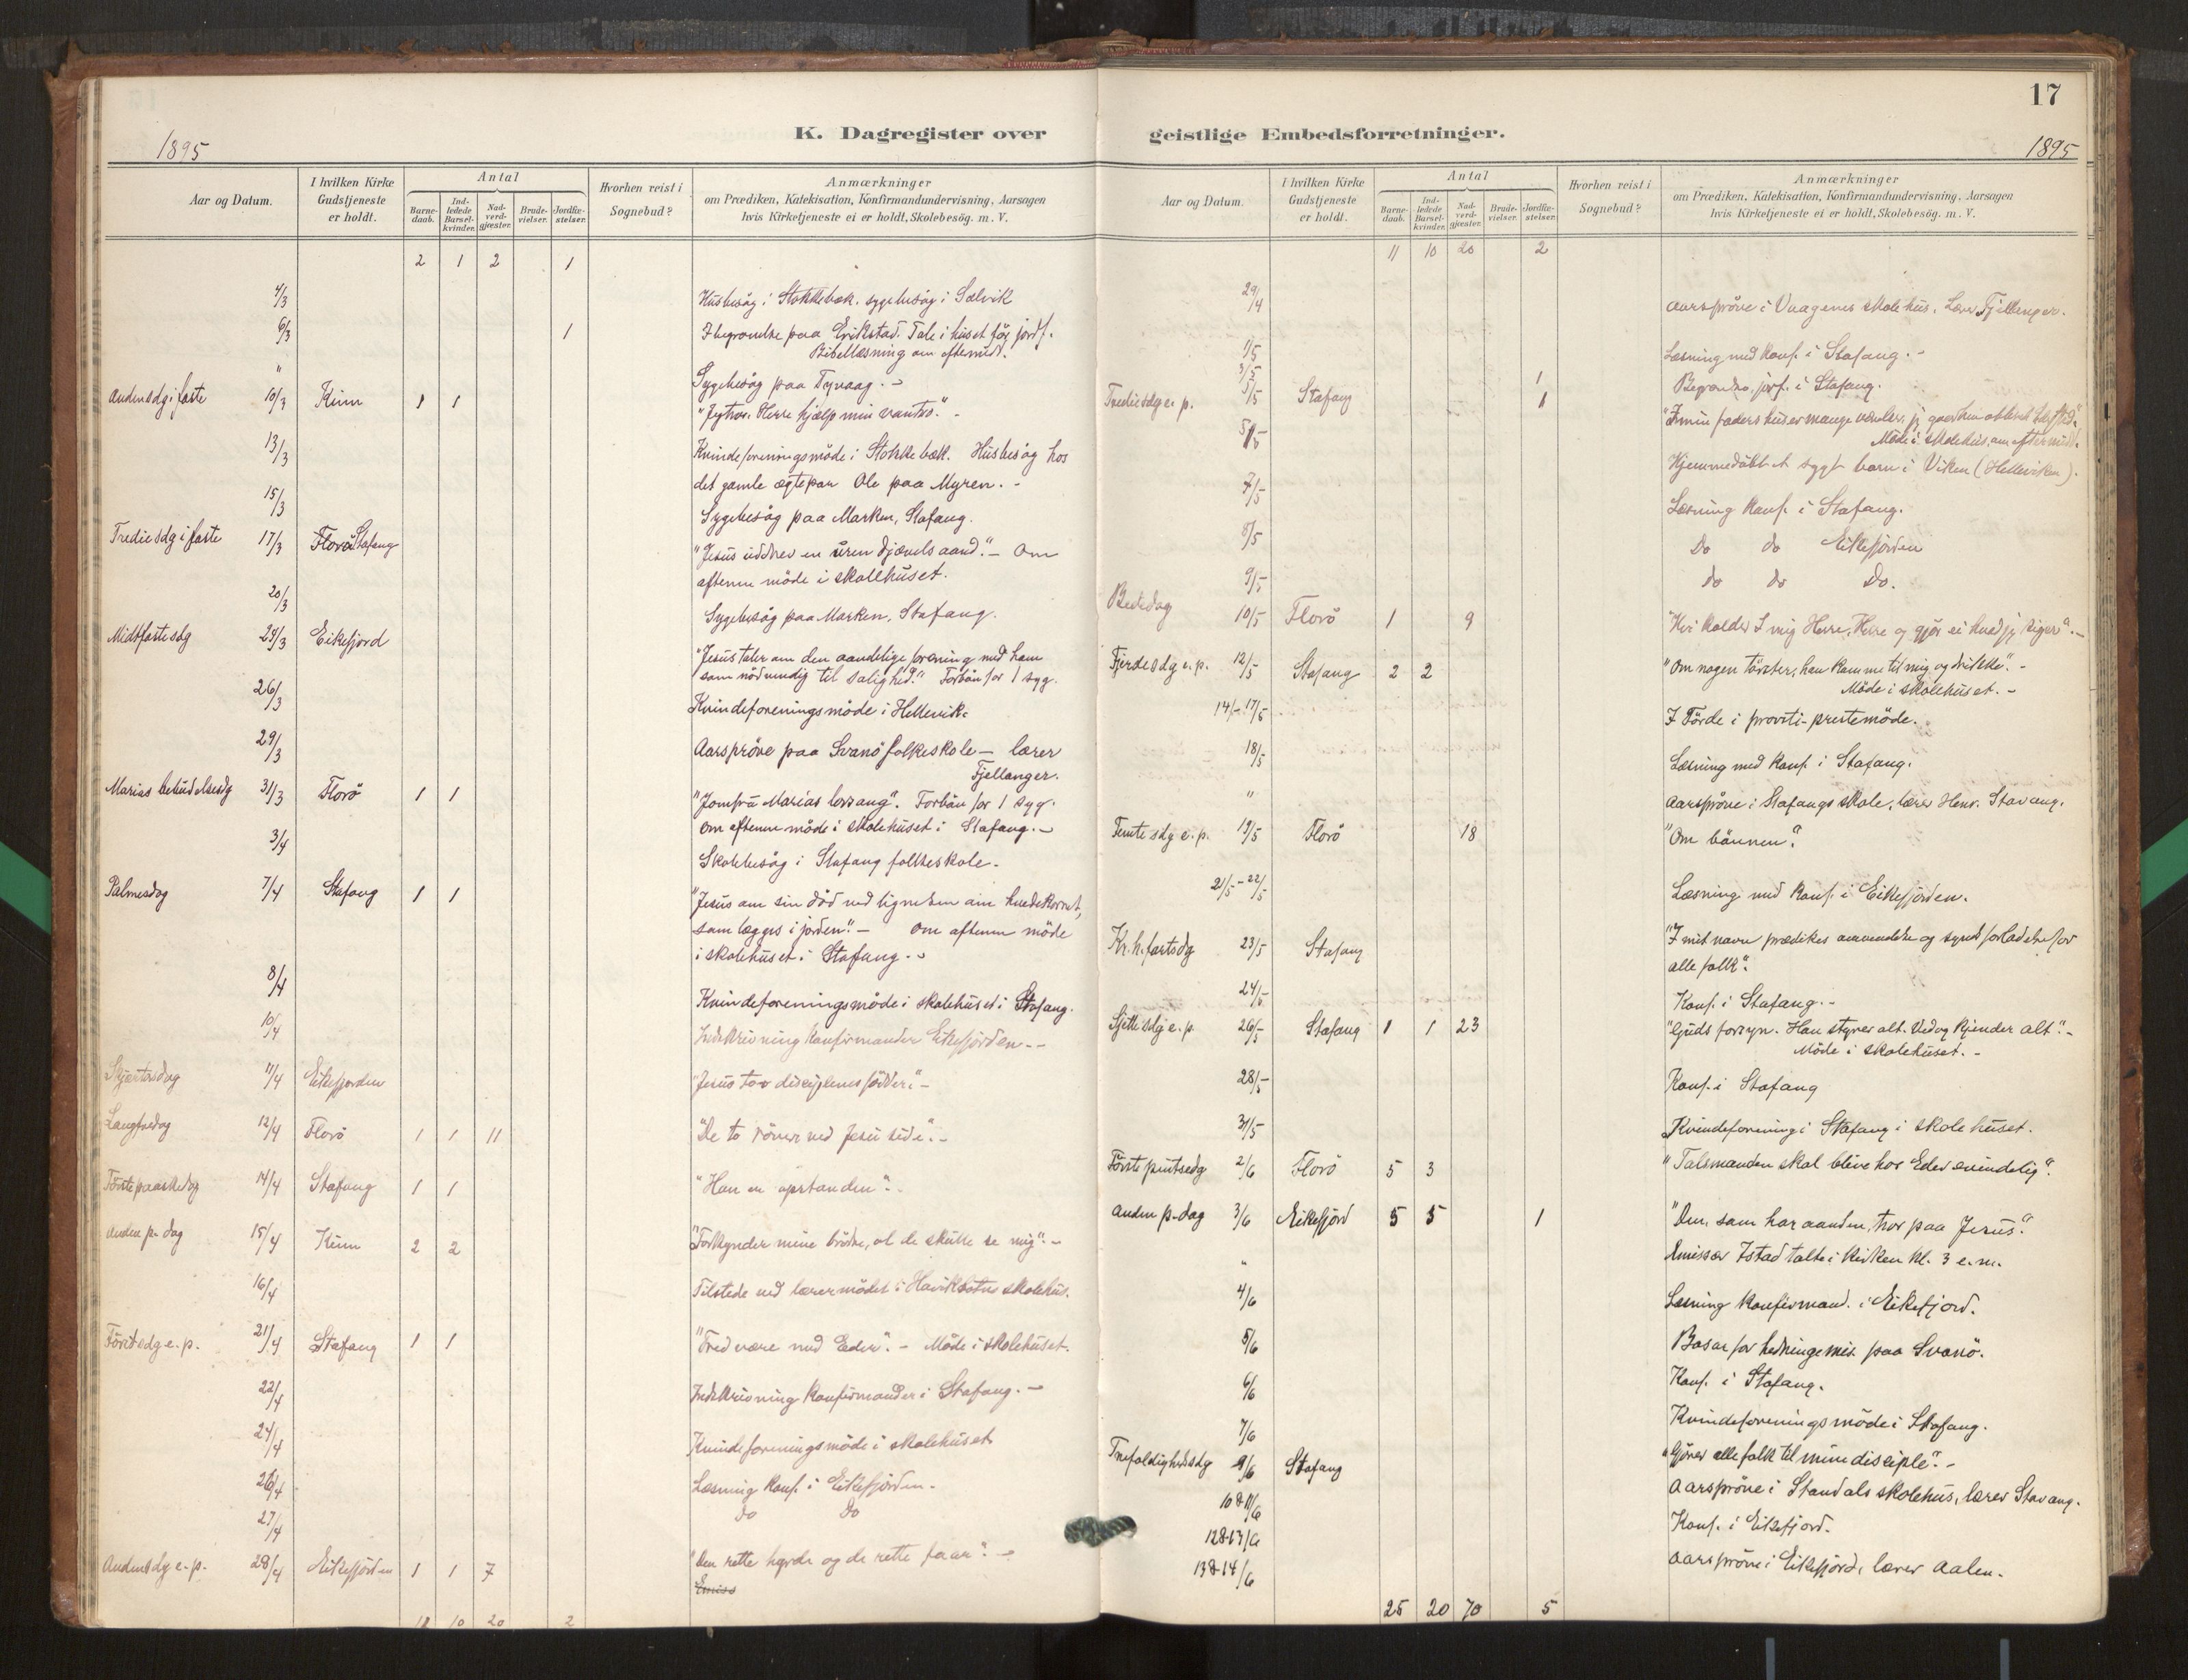 17
K. Dagregister over geistlige Embedsforretninger.
1895
1895
Aar og Datum.
I hvilken Kirke Gudstjeneste er holdt.
Antal
Barne-daab.
Ind-ledede Barsel-kvinder.
Nad-verd-gjæster.
Brude-vielser.
Jordfæ-stelser.
Hvorhen reist i Sognebud?
Anmærkninger
om Prædiken, Katekisation, Konfirmandundervisning, Aarsagen
hvis Kirketjeneste ei er holdt, Skolebesög. m. V.
2 1 2 1
4/3 Husbesög i Stokkebæk. sygebesög i Sælvik
6/3 1 I begravelse paa Erikstad. Tale i huset för jordf.
Bibellæsning om eftermidd.
" Sygebesög paa Tyvaag. -
Anden sdg i faste 10/3 Kinn 1 1 "Jeg tror. Herre hjælp min vantro." -
13/3 Kvindeforeningsmöde i Stokkebæk. Husbesög hos
det gamle ægtepar Ole paa Myren. -
15/3 Sygebesög paa Marken, Stafang.
Tredie sdg i faste 17/3 Stafang "Jesus uddrev en uren djævels aand." - Om
aftenen möde i skolehuset.
20/3 Sygebesög paa Marken, Stafang.
Midtfastesdg 24/3 Eikefjord "Jesus taler om den aandelige forening med ham
som nödvendig til salighed." Forbön for 1 syg.
26/3 Kvindeforeningsmöde i Hellevik.
29/3 Aarspröve paa Svanö folkeskole - lærer
Fjellanger.
Marias bebudelsesdg 31/3 Florö 1 1 "Jomfru Marias lovsang". Forbön for 1 syg.
Om aftenen möde i skolehuset i Stafang. -
3/4 Skolebesög i Stafang folkeskole.
Palmesdag 7/4 Stafang 1 1 "Jesus om sin död ved lignelsen om hvedekornet,
som lægges i jorden." - Om aftenen möde
i skolehuset i Stafang. -
8/4 Kvindeforeningsmöde i skolehuset i Stafang.
10/4 Indskrivning konfirmander Eikefjorden. -
Skjærtorsdag 11/4 Eikefjorden "Jesus tor disciplenes födder." -
Langfredag 12/4 Florö 1 1 11 "De to rövere ved Jesu side." -
Förste paaskedag 14/4 Stafang 1 1 "Han er opstanden". -
Anden p. dag 15/4 Kinn 2 2 "Forkynder mine brödre, at de skulle se mig". -
16/4 Tilstede ved lærermödet i skolehus.
Förste sdg e. p. 21/4 Stafang 1 1 "Fred være med Eder". - Möde i skolehuset.
22/4 Indskrivning konfirmander i Stafang. -
24/4 Kvindeforeningsmöde i skolehuset
26/4 Læsning konf. i Eikefjörden.
27/4 Do Do
Anden sdg e. p. 28/4 Eikefjörden 1 1 7 "Den rette hyrde og de rette faar". -
Emiss
11 10 20 2
Aar og Datum.
I hvilken Kirke Gudstjeneste er holdt.
Antal
Barne-daab.
Ind-ledede Barsel-kvinder.
Nad-verd-gjæster.
Brude-vielser.
Jordfæ-stelser.
Hvorhen reist i Sognebud?
Anmærkninger
om Prædiken, Katekisation, Konfirmandundervisning, Aarsagen
hvis Kirketjeneste ei er holdt, Skolebesög. m. V.
11 10 20 2
29/4 Aarspröve i Vaagenes skolehus. Lærer Fjellanger.
1/5 Læsning med konf. i Stafang. -
3/5 1 i Stafang.
Tredie sdg e. p. 5/5 Stafang 1 "I min faders hus er mange værelser,
Möde i skolehus. om eftermidd.
5/5 Hjemmedöbt et sygt barn i Viken (Helleviken).
7/5 Læsning konf. i Stafang.
8/5 Do do Eikefjörden
9/5 do do Do.
Bededag 10/5 Florö 1 9 "Hvi kalder I mig Herre, Herre og gjör ei hvad jeg siger". -
Fjerde sdg e. p. 12/5 Stafang 2 2 "Om nogen törster, han komme til mig og drikke". -
Möde i skolehuset. -
14/-17/5 I Förde i provsti-prestemöde.
18/5 Læsning med konf. i Stafang.
" Aarspröve i Stafangs skole, lærer Henr. Stavang.
Femte sdg e. p. 19/5 Florö 18 "Om bönnen".
21/5-22/5 Læsning med konf. i Eikefjörden.
Kr. h. fartsdg 23/5 Stafang "I mit navn prædikes omvendelse og synds forladelse for
alle folk".
24/5 Konf. i Stafang. -
Sjette sdg e. p. 26/5 Stafang 1 1 23 "Guds forsyn. Han styrer alt. Ved og kjender alt". -
Möde i skolehuset. -
28/5 Konf. i Stafang
31/5 Kvindeforening i Stafang i skolehuset.
Förste pintsedg 2/6 Florö 5 3 "Talsmanden skal blive hos Eder evindelig".
Anden p-dag 3/6 Eikefjörd 5 5 1 "Den, som har aanden, tror paa Jesus".
" Emissær Istad talte i kirken kl. 3 e. m.
4/6 Læsning konfirmand. i Eikefjord.
5/6 Basar for hedningemis. paa Svanö.
6/6 Konf. i Stafang.
7/6 Kvindeforeningsmöde i Stafang.
Trefoldighedssdg 9/6 Stafang "Gjörer alle folk til mine disciple". -
10 & 11/6 Aarspröve i Standals skolehus, lærer Stavang.
12 & 13/6 Konf. i Eikefjord.
13 & 14/6 Aarspröve i Eikefjord, lærer Aalen.
25 20 70 5